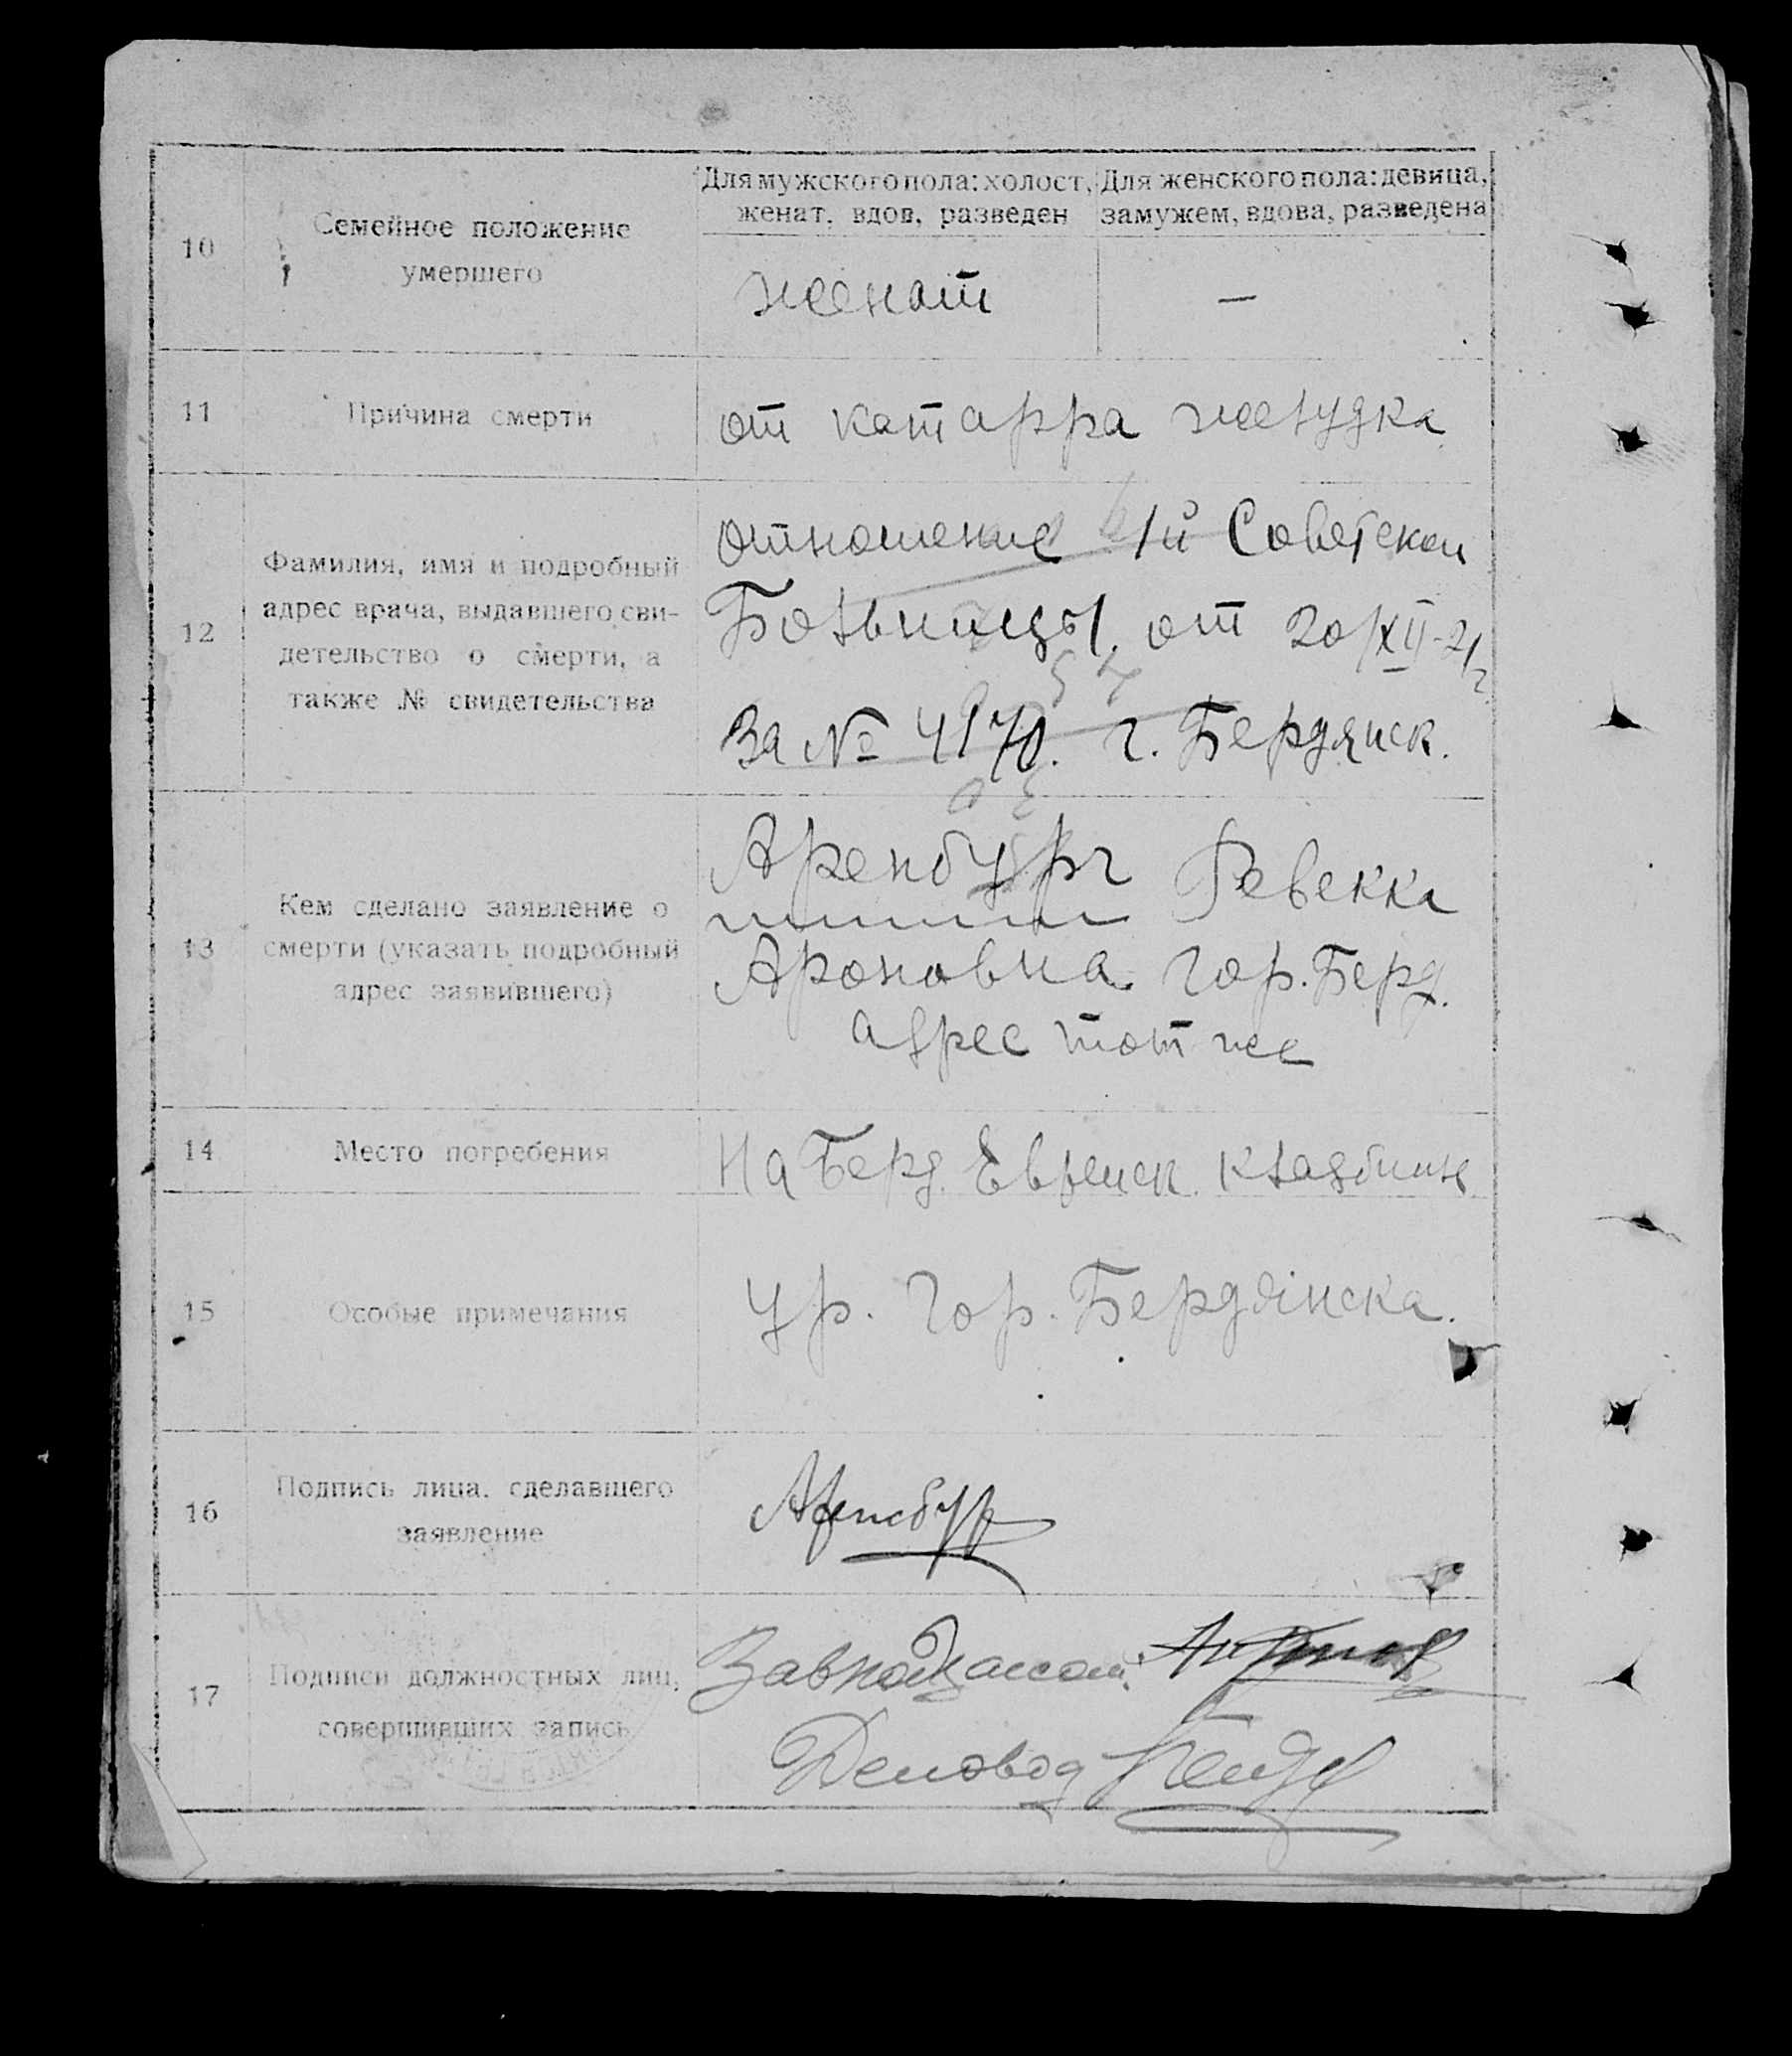 Для мужского пола: холост, женат, вдов, разведен
Для женского пола: девица, замужем, вдова, разведена
10
Семейное положение
умершего
женат
—
11
Причина смерти
от катарра желудка
12
Фамилия, имя и подробный
адрес врача, выдавшего сви-
детельство о смерти, а
также № свидетельства
отношение 1й Советской
Больницы от 20/XII-21 г.
За № 4170. г. Бердянск.
13
Кем сделано заявление о
смерти (указать подробный
адрес заявившего)
Аренбург Ревекка
Ароновна Гор. Берд.
адрес тот же
14
Место погребения
На Берд. Еврейск. кладбище
15
Особые примечания
Ур. Гор. Бердянска.
16
Подпись лица, сделавшего
заявление
17
Подписи должностных лиц,
совершивших запись
Делопвод